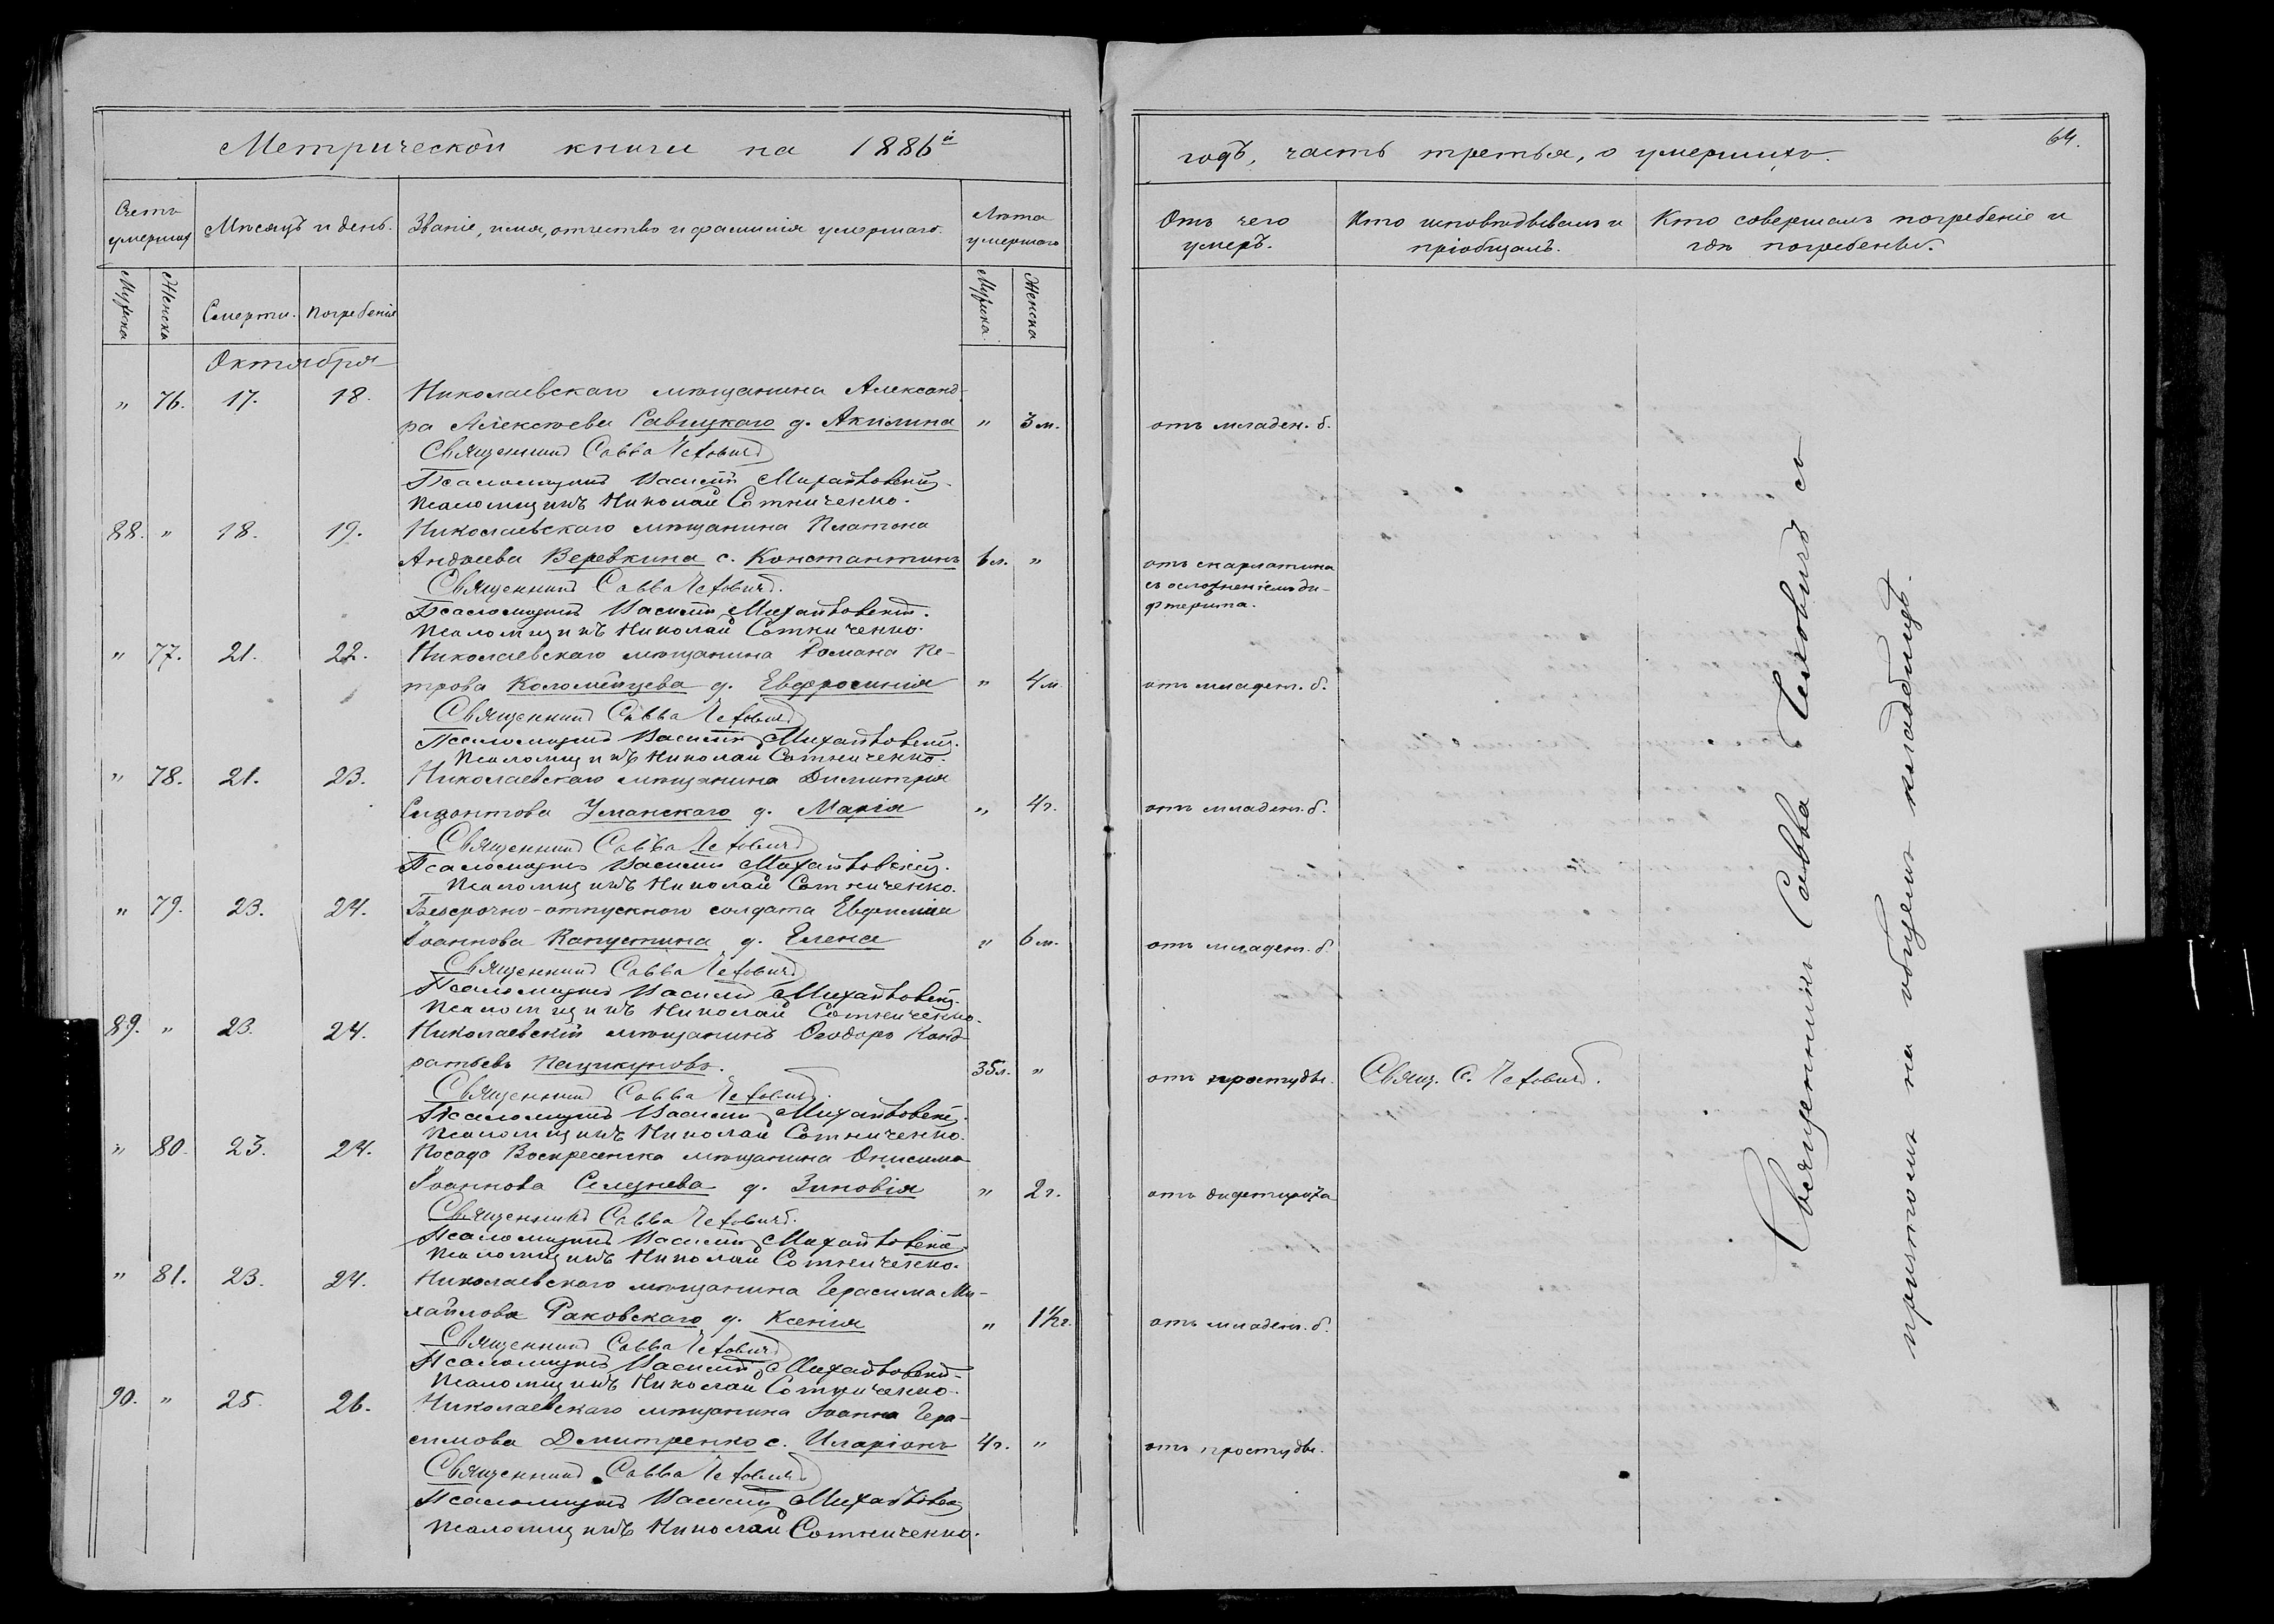 Метрической книги на 1886й
Счетъ умершихъ
Мѣсяцъ и день.
Званіе, имя, отчество и фамилія умершаго.
Лѣта умершаго
Мужска
Женска
Смерти.
Погребенія
Мужска
Женска
Октября
" 76. 17. 18. Николаевскаго мѣщанина Александ-
ра Алексѣева Савицкаго д. Акилина " 3 м.
Священникъ Савва Чехович
Псаломщикъ Василій Михайловскій.
Псаломщикъ Николай Сотниченко.
88. " 18. 19. Николаевскаго мѣщанина Платона
Андреева Веревкина с. Константинъ 6 л. "
Священникъ Савва Чехович.
Псаломщикъ Василій Михайловскій.
Псаломщикъ Николай Сотниченко.
" 77. 21. 22. Николаевскаго мѣщанина Романа Пе-
трова Коломѣйцева д. Евфросинія " 4 м.
Священникъ Савва Чехович
Псаломщикъ Василій Михайловскій.
Псаломщикъ Николай Сотниченко.
" 78. 21. 23. Николаевскаго мѣщанина Димитрія
Уманскаго д. Марія " 4 г.
Священникъ Савва Чехович
Псаломщикъ Василій Михайловскій.
Псаломщикъ Николай Сотниченко.
" 79. 23. 24. Безсрочно-отпускного солдата Евфимія
Іоаннова Капустина д. Елена " 6 м.
Священникъ Савва Чехович
Псаломщикъ Василій Михайловскій.
Псаломщикъ Николай Сотниченко.
89. " 23. 24. Николаевскій мѣщанинъ Ѳеодоръ Конд-
ратьевъ Пащикуновъ. 35 л. "
Священникъ Савва Чехович.
Псаломщикъ Василій Михайловскій.
Псаломщикъ Николай Сотниченко.
" 80. 23. 24. Посада Воскресенска мѣщанина Онисима
Іоаннова Селезнева д. Зиновія " 2 г.
Священникъ Савва Чехович.
Псаломщикъ Василій Михайловскій.
Псаломщикъ Николай Сотниченко.
" 81. 23. 24. Николаевскаго мѣщанина Герасима Ми-
хайлова Раковскаго д. Ксенія " 1½ г.
Священникъ Савва Чехович
Псаломщикъ Василій Михайловскій.
Псаломщикъ Николай Сотниченко.
90. " 25. 26. Николаевскаго мѣщанина Іоанна Гера-
симова Дмитренко с. Иларіонъ 4 г. "
Священникъ Савва Чехович
Псаломщикъ Василій Михайловскій
Псаломщикъ Николай Сотниченко.
годъ, часть третья, о умершихъ.
64.
Отъ чего умеръ.
Кто исповѣдывалъ и пріобщалъ.
Кто совершалъ погребеніе и гдѣ погребены.
отъ младен. б.
отъ скарлатина
съ осложненіемъ ди-
фтерита.
отъ младен. б.
отъ младен. б.
отъ младен. б.
отъ простуды. Свящ. С. Чехович.
отъ дифтерита
отъ младен. б.
отъ простуды.
Священникъ Савва Чеховичъ съ
причтомъ на общемъ кладбищѣ.